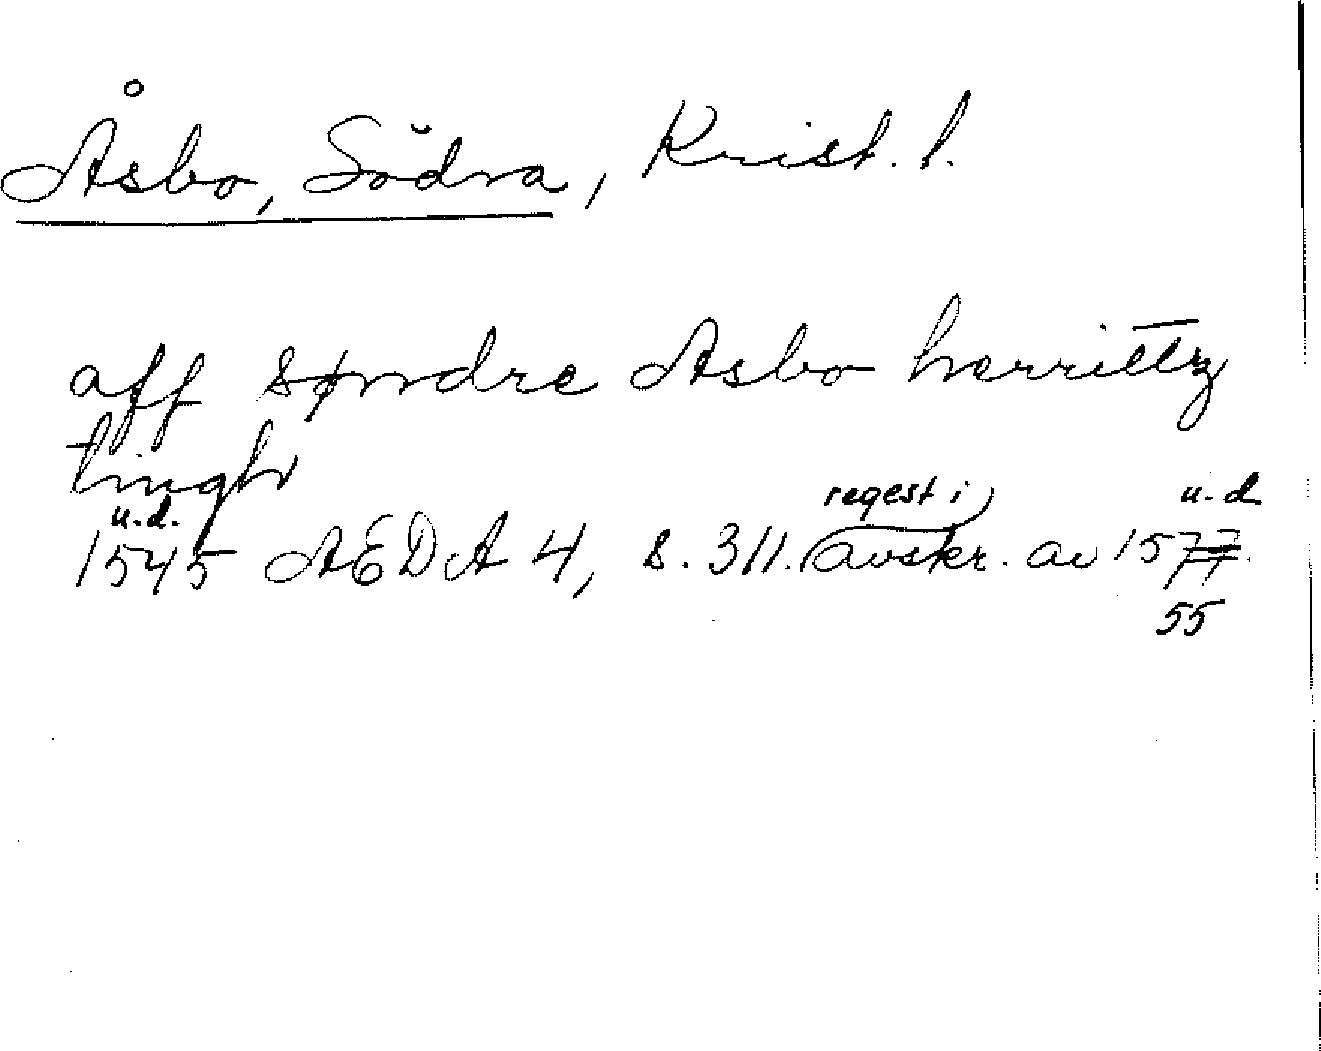 Åsbo, Södra, Krist. l.
aff søndre Asbo herrittz
tingh
u.d. regest i u.d.
1545 AEDA 4, s. 311. (avskr. av 1577.
55